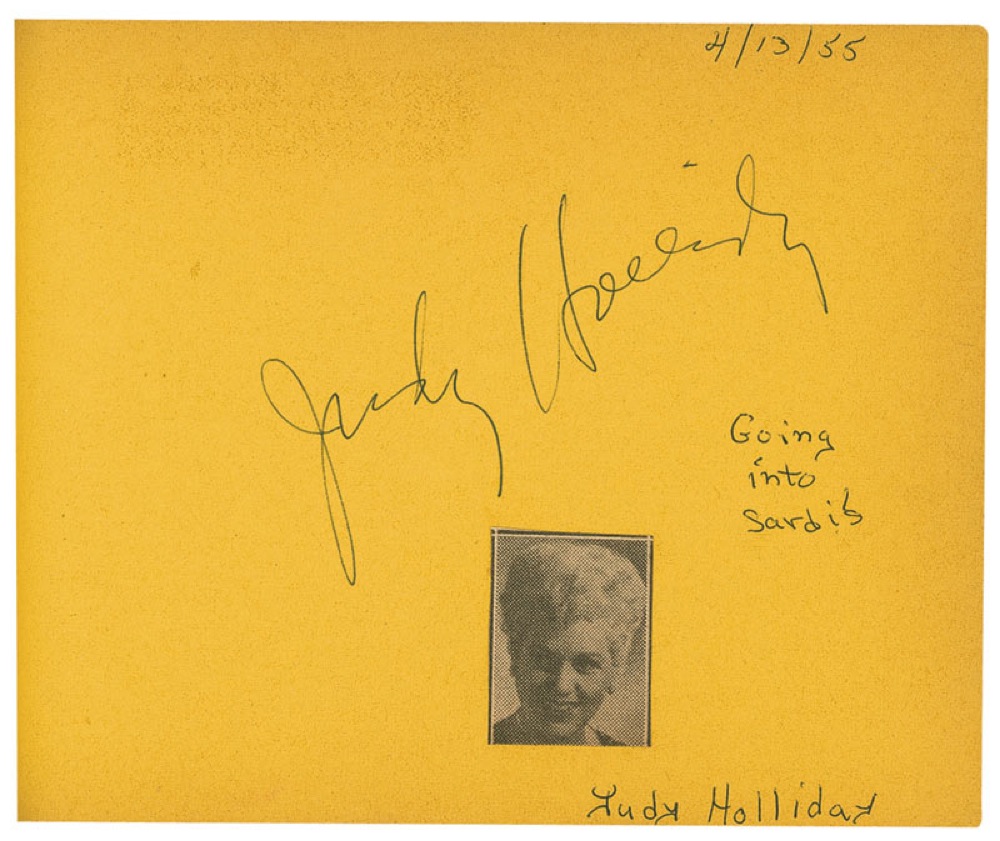 4/13/55
Judy Holliday
Going
into
Sardi's
Judy Holliday